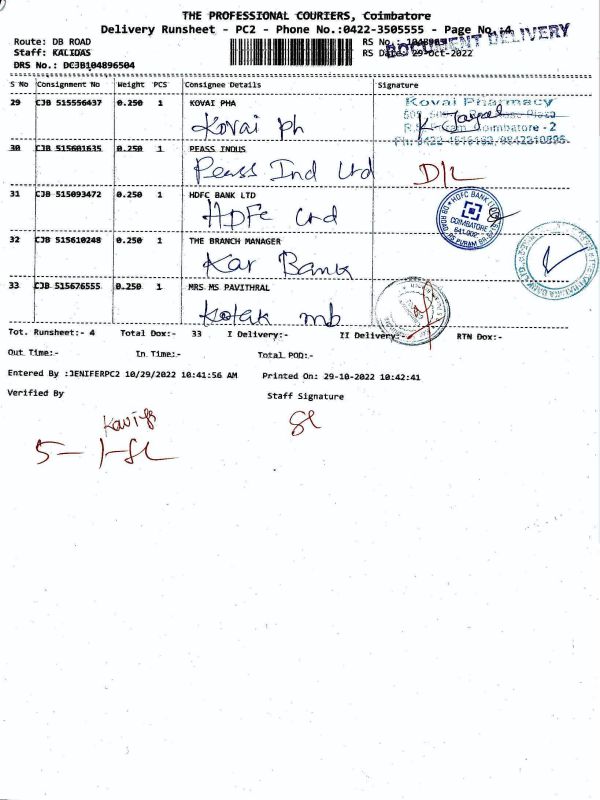 THE PROFESSIONAL COURIERS, Coimbatore
Delivery Runsheet - PC2 - Phone No.:0422-3505555 - Page No.:4
DOCUMENT DELIVERY
Route: DB ROAD
RS No.:
Staff: KALIDAS
RS Date: 29-Oct-2022
DRS No.: DCJB104896504
S No Consignment No Weight PCS Consignee Details Signature
29 CJB 515556437 0.250 1 KOVAI PHA
Kovai ph
Kovai Pharmacy
Coimbatore - 2
30 CJB 515601635 0.250 1 PEASS INDUS
Peass Ind Ltd D/L
31 CJB 515093472 0.250 1 HDFC BANK LTD
HDFC Crd
HDFC BANK LTD
COIMBATORE
641 002
DB ROAD, RS PURAM
32 CJB 515610248 0.250 1 THE BRANCH MANAGER
Kar Bank
33 CJB 515676555 0.250 1 MRS MS PAVITHRAL
Kotak mb
Tot. Runsheet:- 4 Total Dox:- 33 I Delivery:- II Delivery:- RTN Dox:-
Out Time:- In Time:- Total POD:-
Entered By :JENIFERPC2 10/29/2022 10:41:56 AM Printed On: 29-10-2022 10:42:41
Verified By Staff Signature